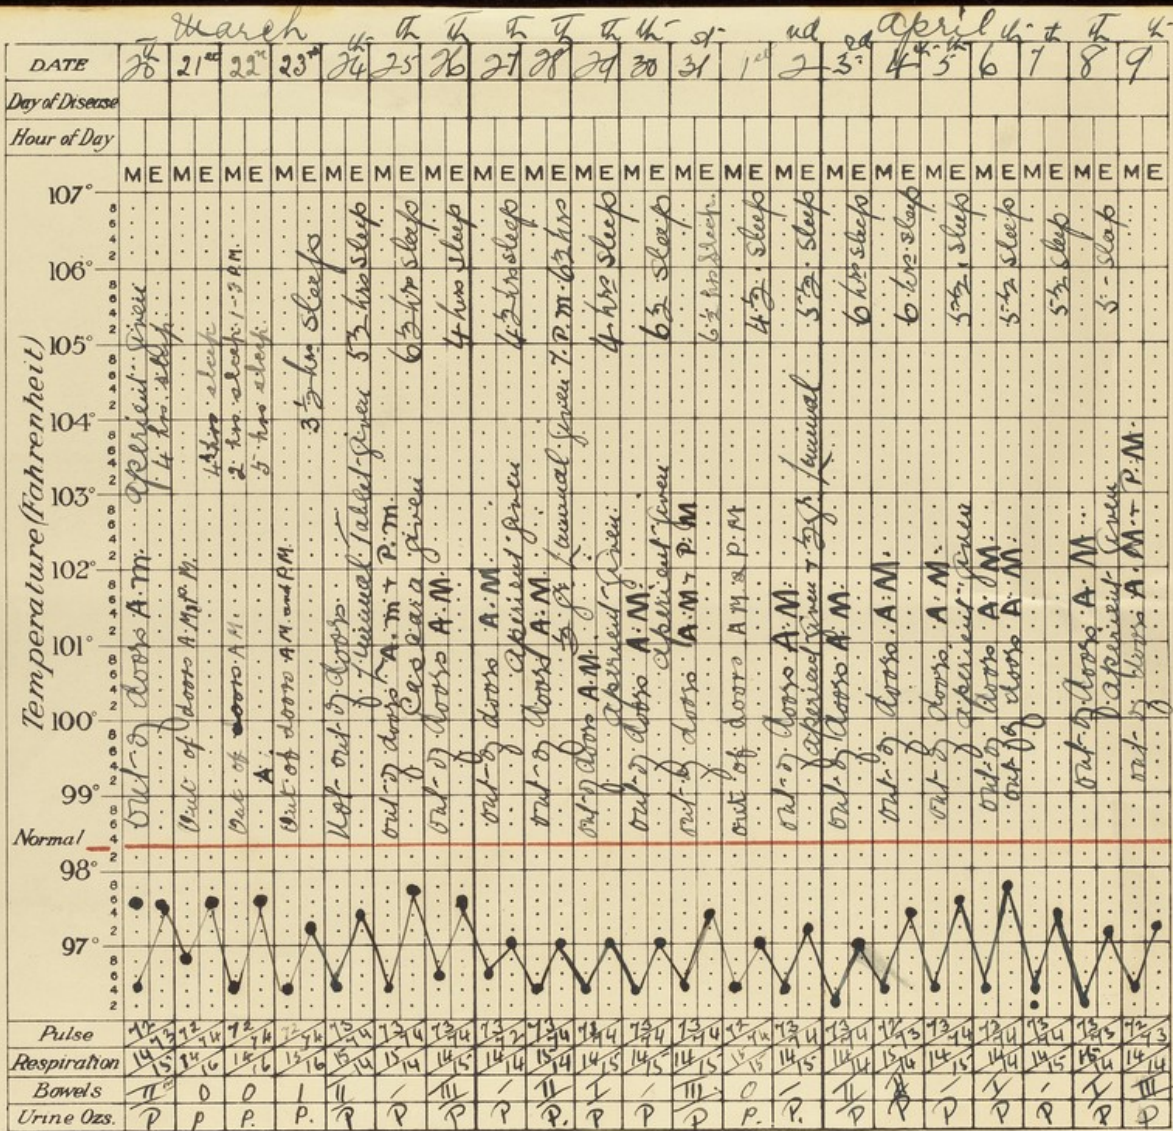 March April
DATE 20th 21st 22nd 23rd 24th 25th 26th 27th 28th 29th 30th 31st 1st 2nd 3rd 4th 5th 6th 7th 8th 9th
Day of Disease
Hour of Day
M E M E M E M E M E M E M E M E M E M E M E M E M E M E M E M E M E M E M E M E M E
Temperature (Fahrenheit)
107°
106°
105°
104°
103°
102°
101°
100°
99°
Normal
98°
97°
out of doors A.M. aperient given
4 hrs. sleep
Out of doors A.M. P.M.
4½ hrs sleep
Out of doors A.M. 2 hrs. sleep 1-3 P.M.
A. 5 hrs sleep.
Out of doors A.M. and P.M.
3½ hrs sleep
Not out of doors.
Luminal Tablet given 5½ hrs sleep
out of doors A.M + P.M.
Cascara given 6½ hrs sleep
out of doors A.M. 4 hrs sleep
out of doors A.M.
aperient given 4½ hrs sleep
out of doors A.M.
½ gr Luminal given 7.P.M. 6½ hrs
out of doors A.M.
aperient given. 4 hrs sleep
out of doors A.M.
aperient given 6½ sleep
out of doors A.M + P.M
6½ hrs sleep.
out of doors A.M & P.M
4½ sleep
out of doors A.M.
aperient given + ½ gr. Luminal 5½ sleep
out of doors A.M. 6 hrs sleep
out of doors. A.M. 6 hrs sleep
out of doors. A.M.
aperient given 5½ sleep
out of doors A.M.
out of doors A.M. 5½ sleep
5½ sleep
out of doors A.M
aperient given 5 sleep
out of doors A.M + P.M.
Pulse 72/73 72/74 72/74 72/74 73/74 73/74 73/74 73/72 73/74 72/74 73/74 73/74 72/74 73/74 73/74 72/73 73/74 73/74 73/74 73/73 72/73
Respiration 14/15 14/16 14/16 15/16 15/14 15/14 14/15 14/14 15/14 14/15 14/15 14/15 14/15 14/15 14/14 15/14 14/15 14/14 14/15 14/14
Bowels II 0 0 1 II / III / II I / III 0 / II / I / I III
Urine Ozs. P P P. P. P P P P P. P P P P. P. P P P P P P P